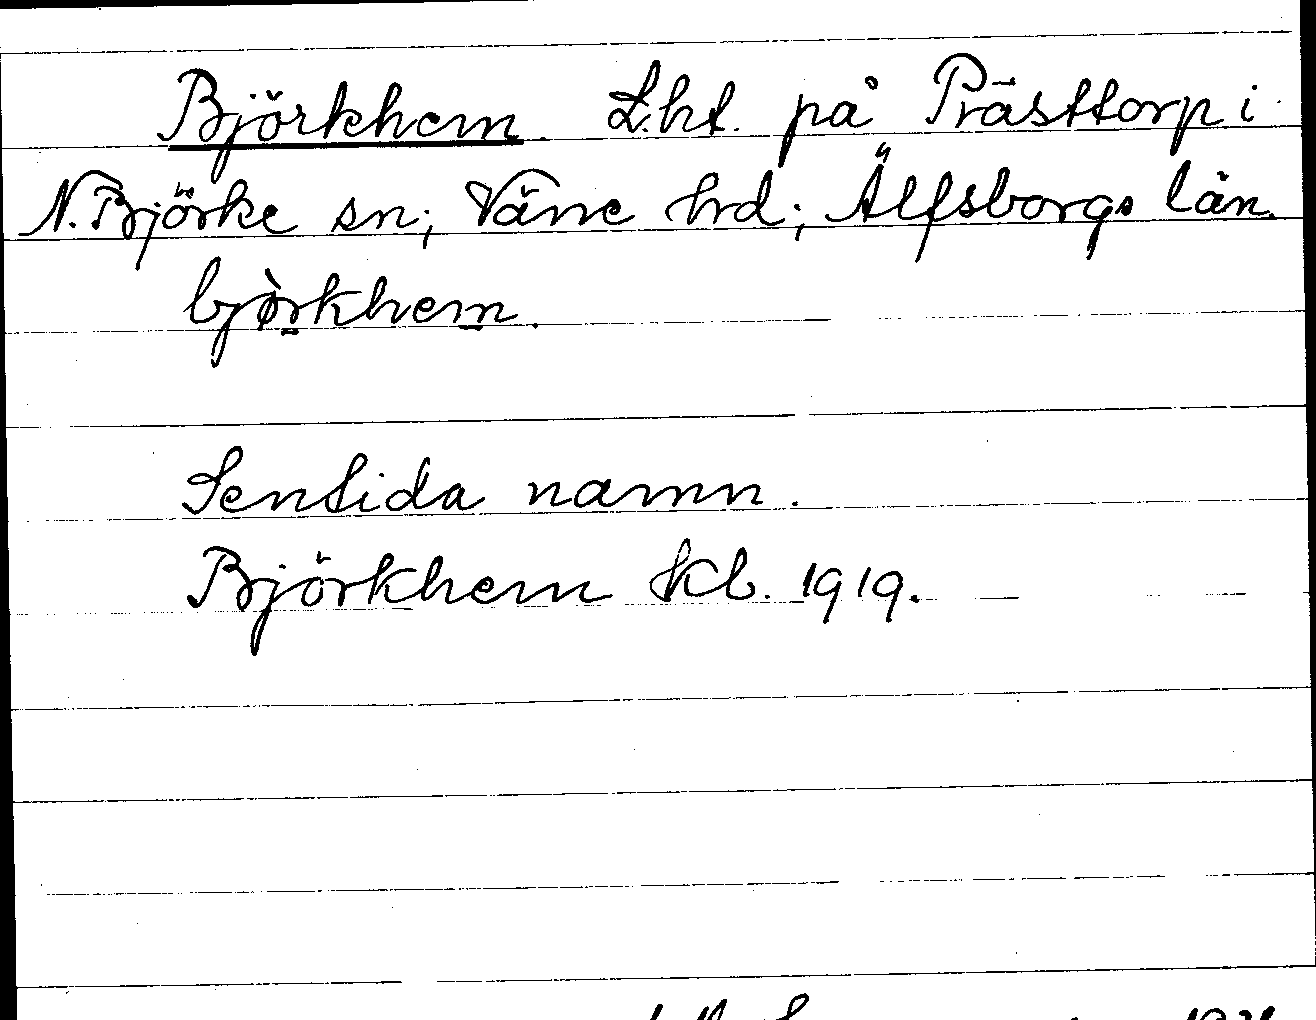 Björkhem. L.ht. på Prästtorp i
N. Björke sn; Väne hrd; Älfsborgs län.
bjø̀rkhem.
Sentida namn.
Björkhem Kb. 1919.